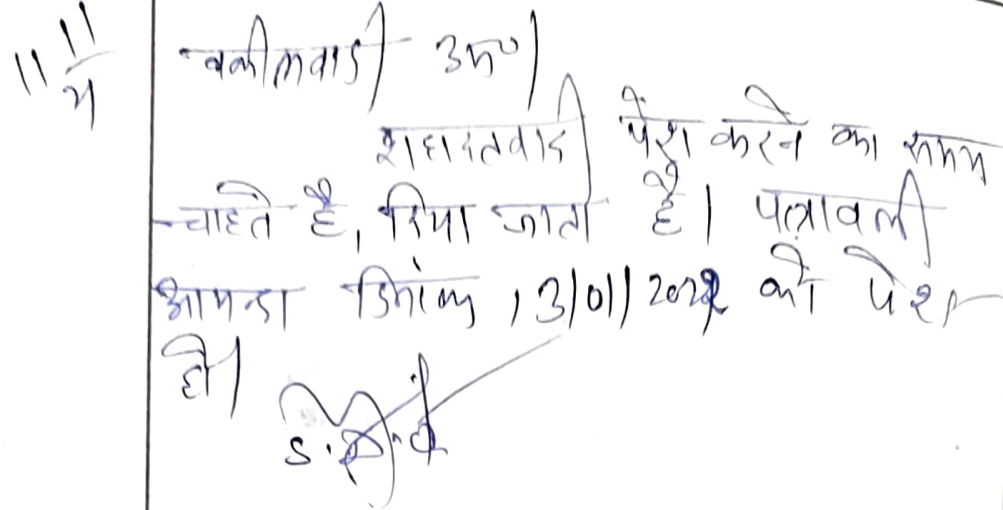 11/11
वकीलवादी उप०।
शहादतवादी पेश करने का समय
चाहते है, दिया जाता है। पत्रावली
आयन्दा दिनांक 13/01/2022 को पेश
हो।